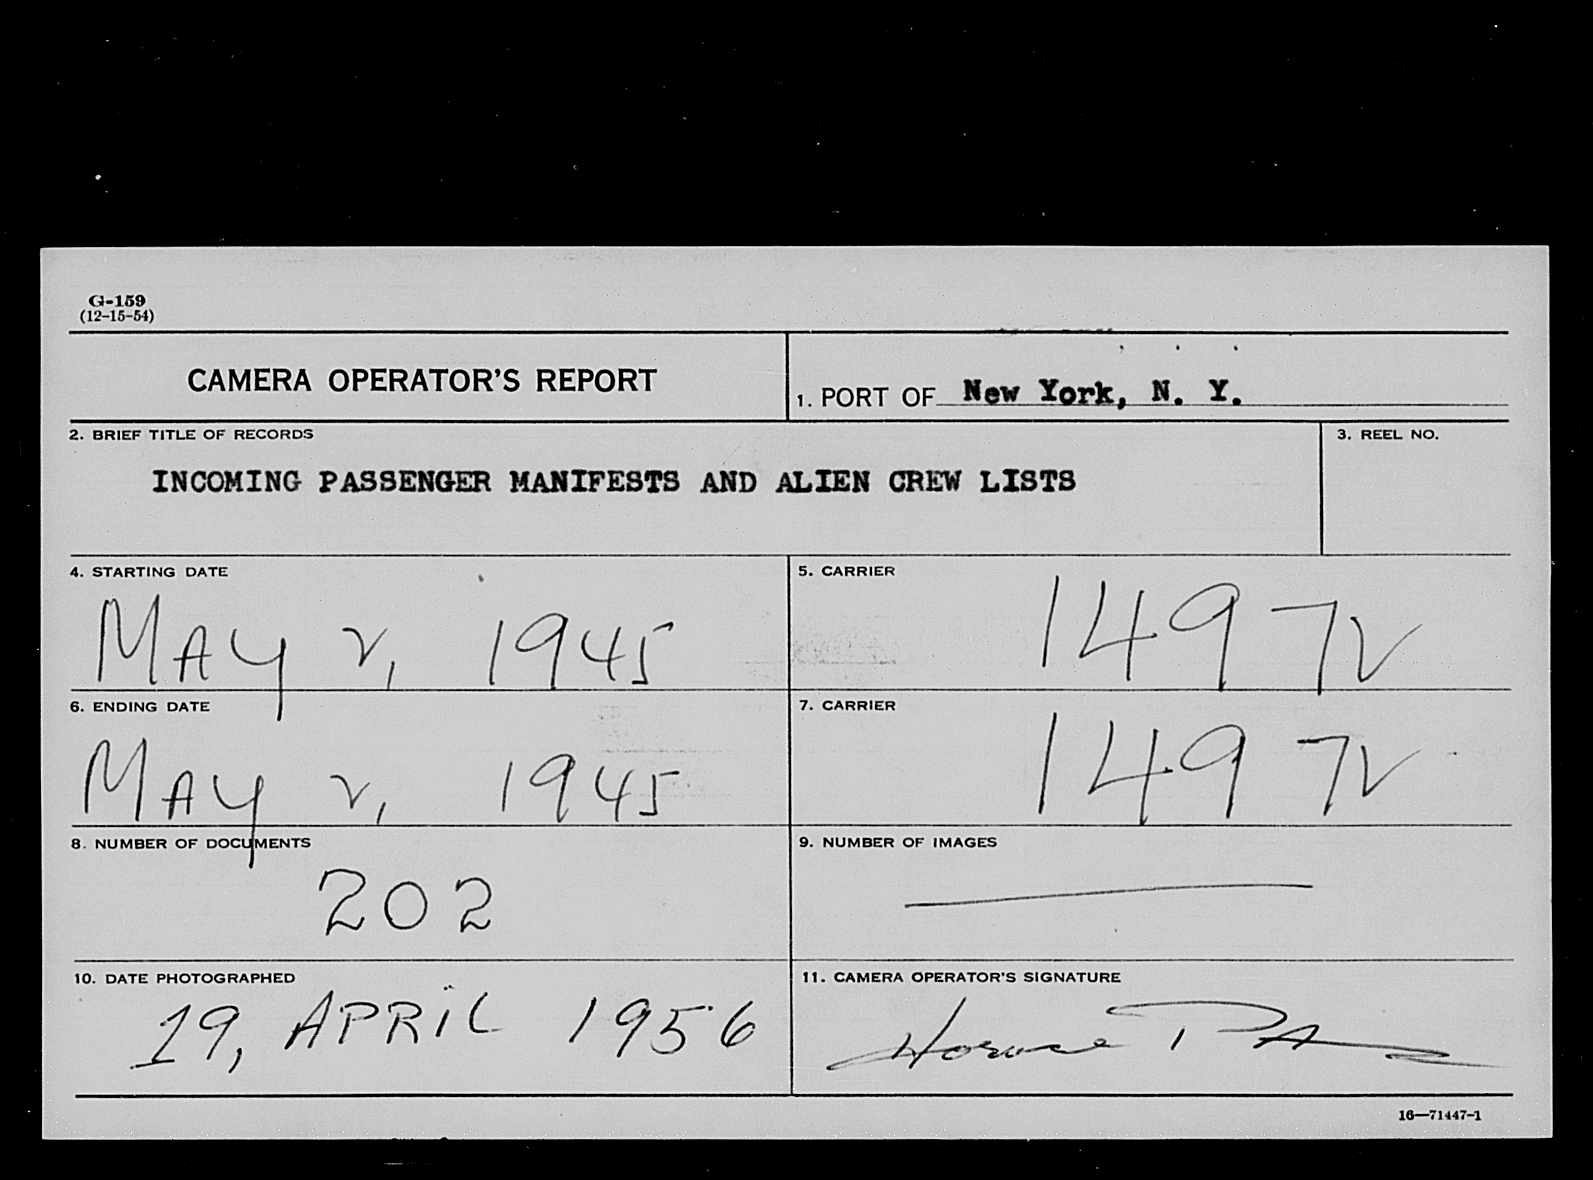 G-159
(12-15-54)
CAMERA OPERATOR'S REPORT
1. PORT OF New York, N. Y.
2. BRIEF TITLE OF RECORDS
INCOMING PASSENGER MANIFESTS AND ALIEN CREW LISTS
3. REEL NO.
4. STARTING DATE
MAY 2, 1945
5. CARRIER
14972
6. ENDING DATE
MAY 2, 1945
7. CARRIER
14972
8. NUMBER OF DOCUMENTS
202
9. NUMBER OF IMAGES
10. DATE PHOTOGRAPHED
19, APRIL 1956
11. CAMERA OPERATOR'S SIGNATURE
Horace
16—71447-1